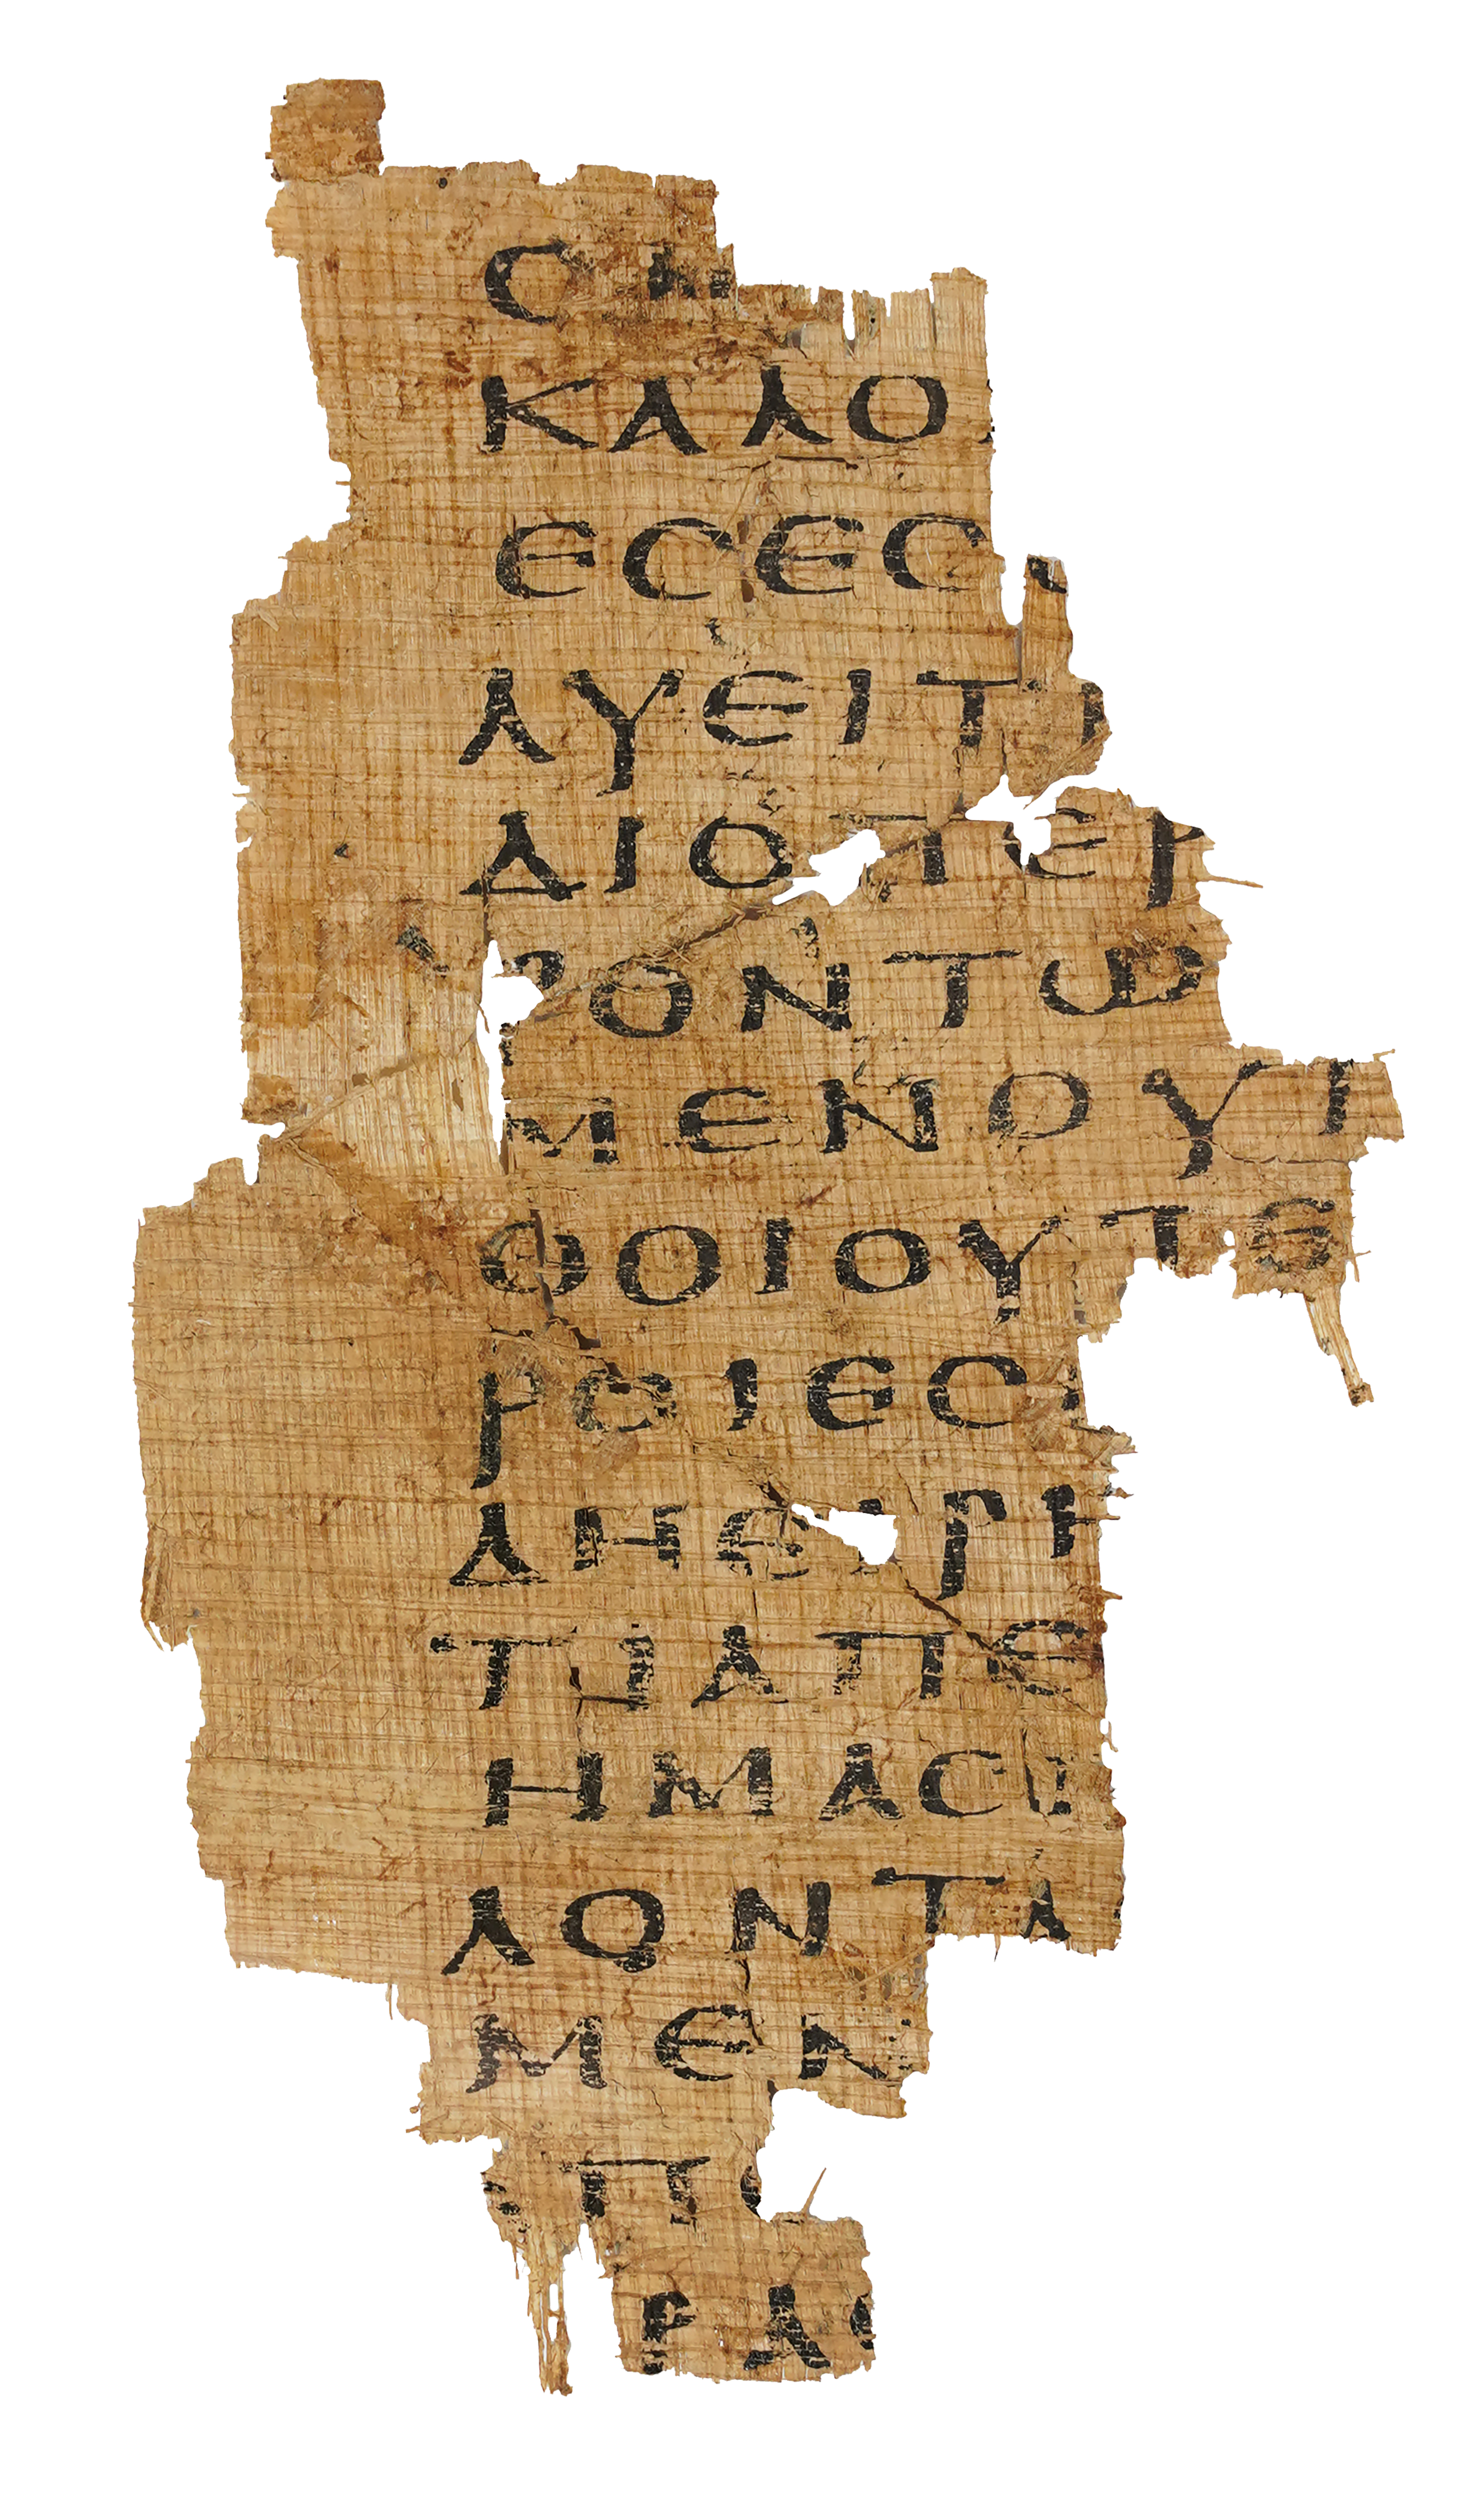 Ο
ΚΑΛΟ
ΕϹΕϹ
ΛΥΕΙΤ
ΔΙΟΠΕΡ
ΡΟΝΤΩ
ΜΕΝΟΥΙ
ΦΟΙΟΥΤΕ
ΡΟΙΕϹ
ΔΗΕΙΡΗ
ΤΙΑΠΕ
ΗΜΑϹ
ΛΟΝΤΑ
ΜΕΝ
ΠΟ
ΡΛ